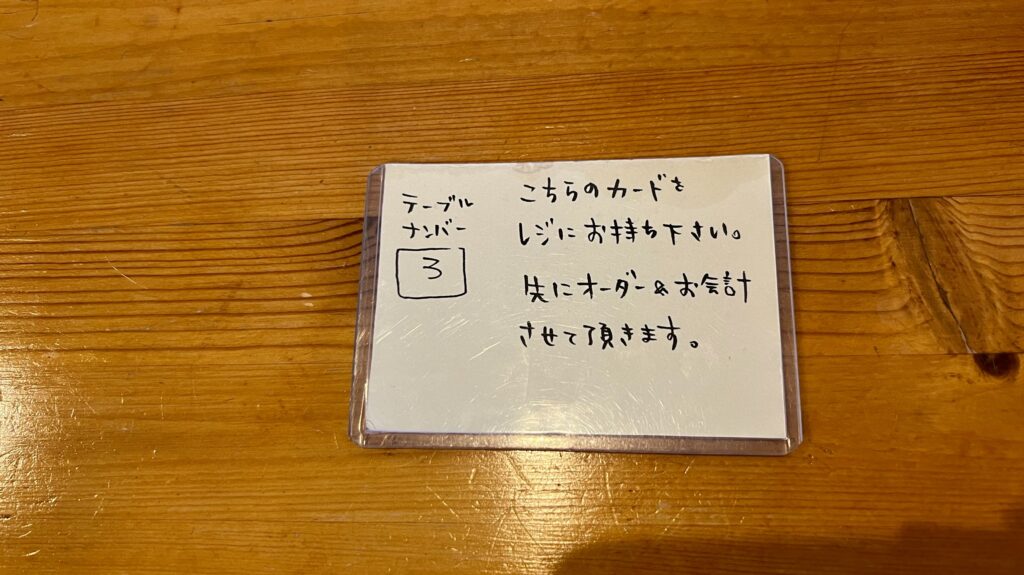 テーブル
ナンバー
3
こちらのカードを
レジにお持ち下さい。
先にオーダー&お会計
させて頂きます。